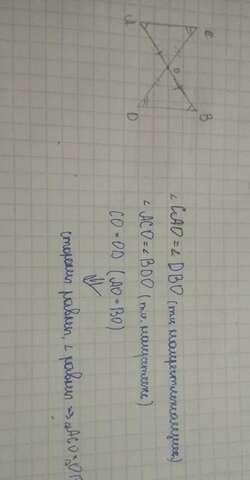 A C
O
D B
∠ CAO = ∠ DBO (т.к. накрестлежащие)
∠ ACO = ∠ BDO (т.к. накрестлеж)
CO = OD (AO = BO)
⇓
стороны равны, ∠ равны ⇒ △ACO =